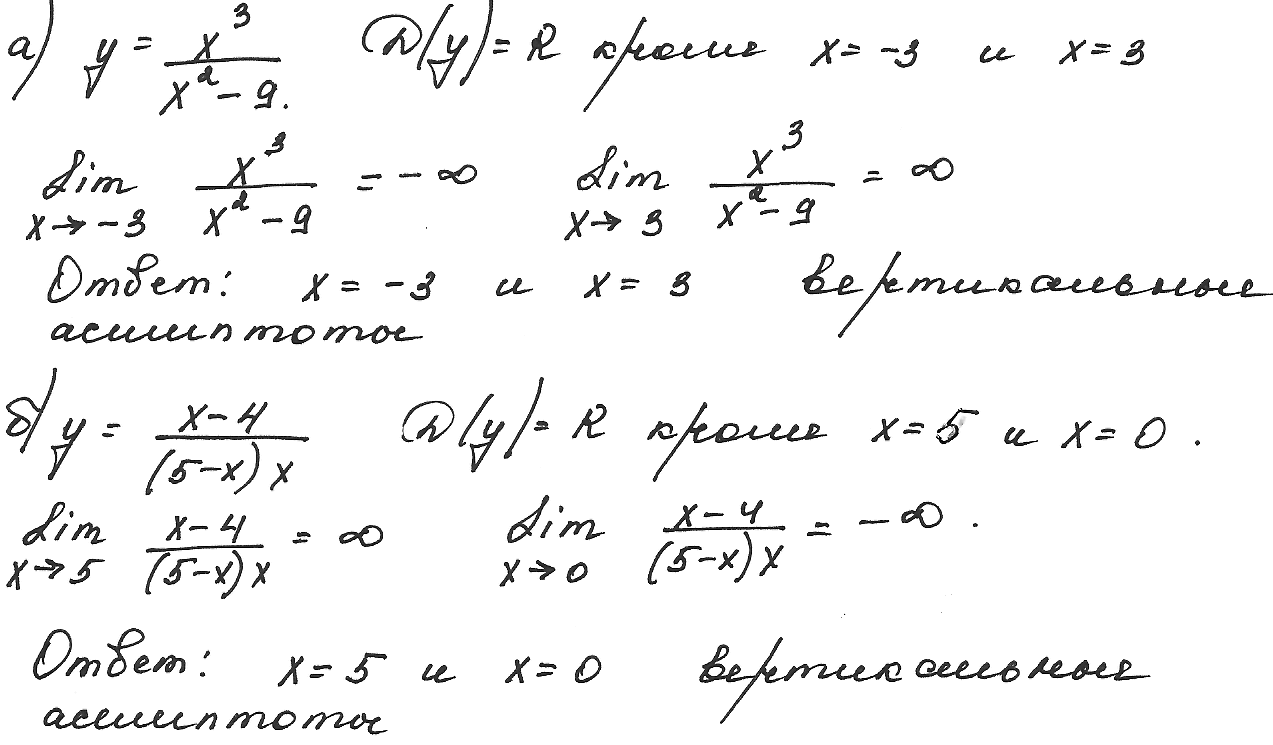 а) y = x³/(x² - 9). D(y) = R кроме x = -3 и x = 3
lim x→-3 x³/(x² - 9) = -∞ lim x→3 x³/(x² - 9) = ∞
Ответ: x = -3 и x = 3 вертикальные
асимптоты
б) y = (x - 4)/((5 - x) x) D(y) = R кроме x = 5 и x = 0.
lim x→5 (x - 4)/((5 - x) x) = ∞ lim x→0 (x - 4)/((5 - x) x) = -∞.
Ответ: x = 5 и x = 0 вертикальные
асимптоты